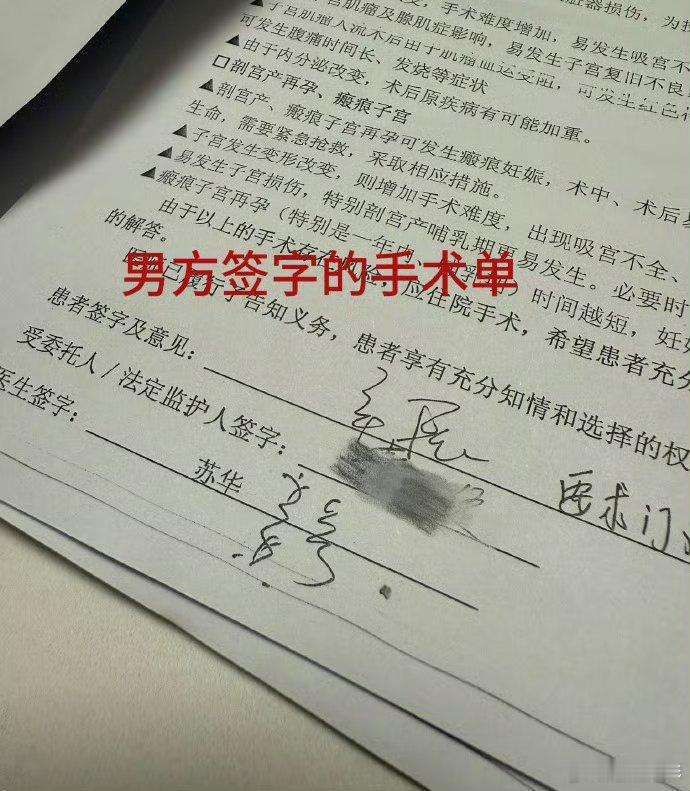 手术难度增加，易发生吸宫不
脏器损伤，为
▲子宫肌瘤及腺肌症影响，易发生子宫复旧不良
▲子宫肌瘤人流术后由于肌瘤血运受阻，可发生红色
可发生腹痛时间长、发烧等症状
▲由于内分泌改变，术后原疾病有可能加重。
□剖宫产再孕、瘢痕子宫
▲剖宫产、瘢痕子宫再孕可发生瘢痕妊娠，术中、术后
生命，需要紧急抢救，采取相应措施。
▲子宫发生变形改变，则增加手术难度，出现吸宫不全、
▲易发生子宫损伤，特别剖宫产哺乳期更易发生。必要时
▲瘢痕子宫再孕（特别是一年内、时间越短，妊
由于以上的手术存在风险，应住院手术，希望患者充分
的解答。
医师已履行了告知义务，患者享有充分知情和选择的权
男方签字的手术单
患者签字及意见：
要求门
受委托人/法定监护人签字：
医生签字：
苏华